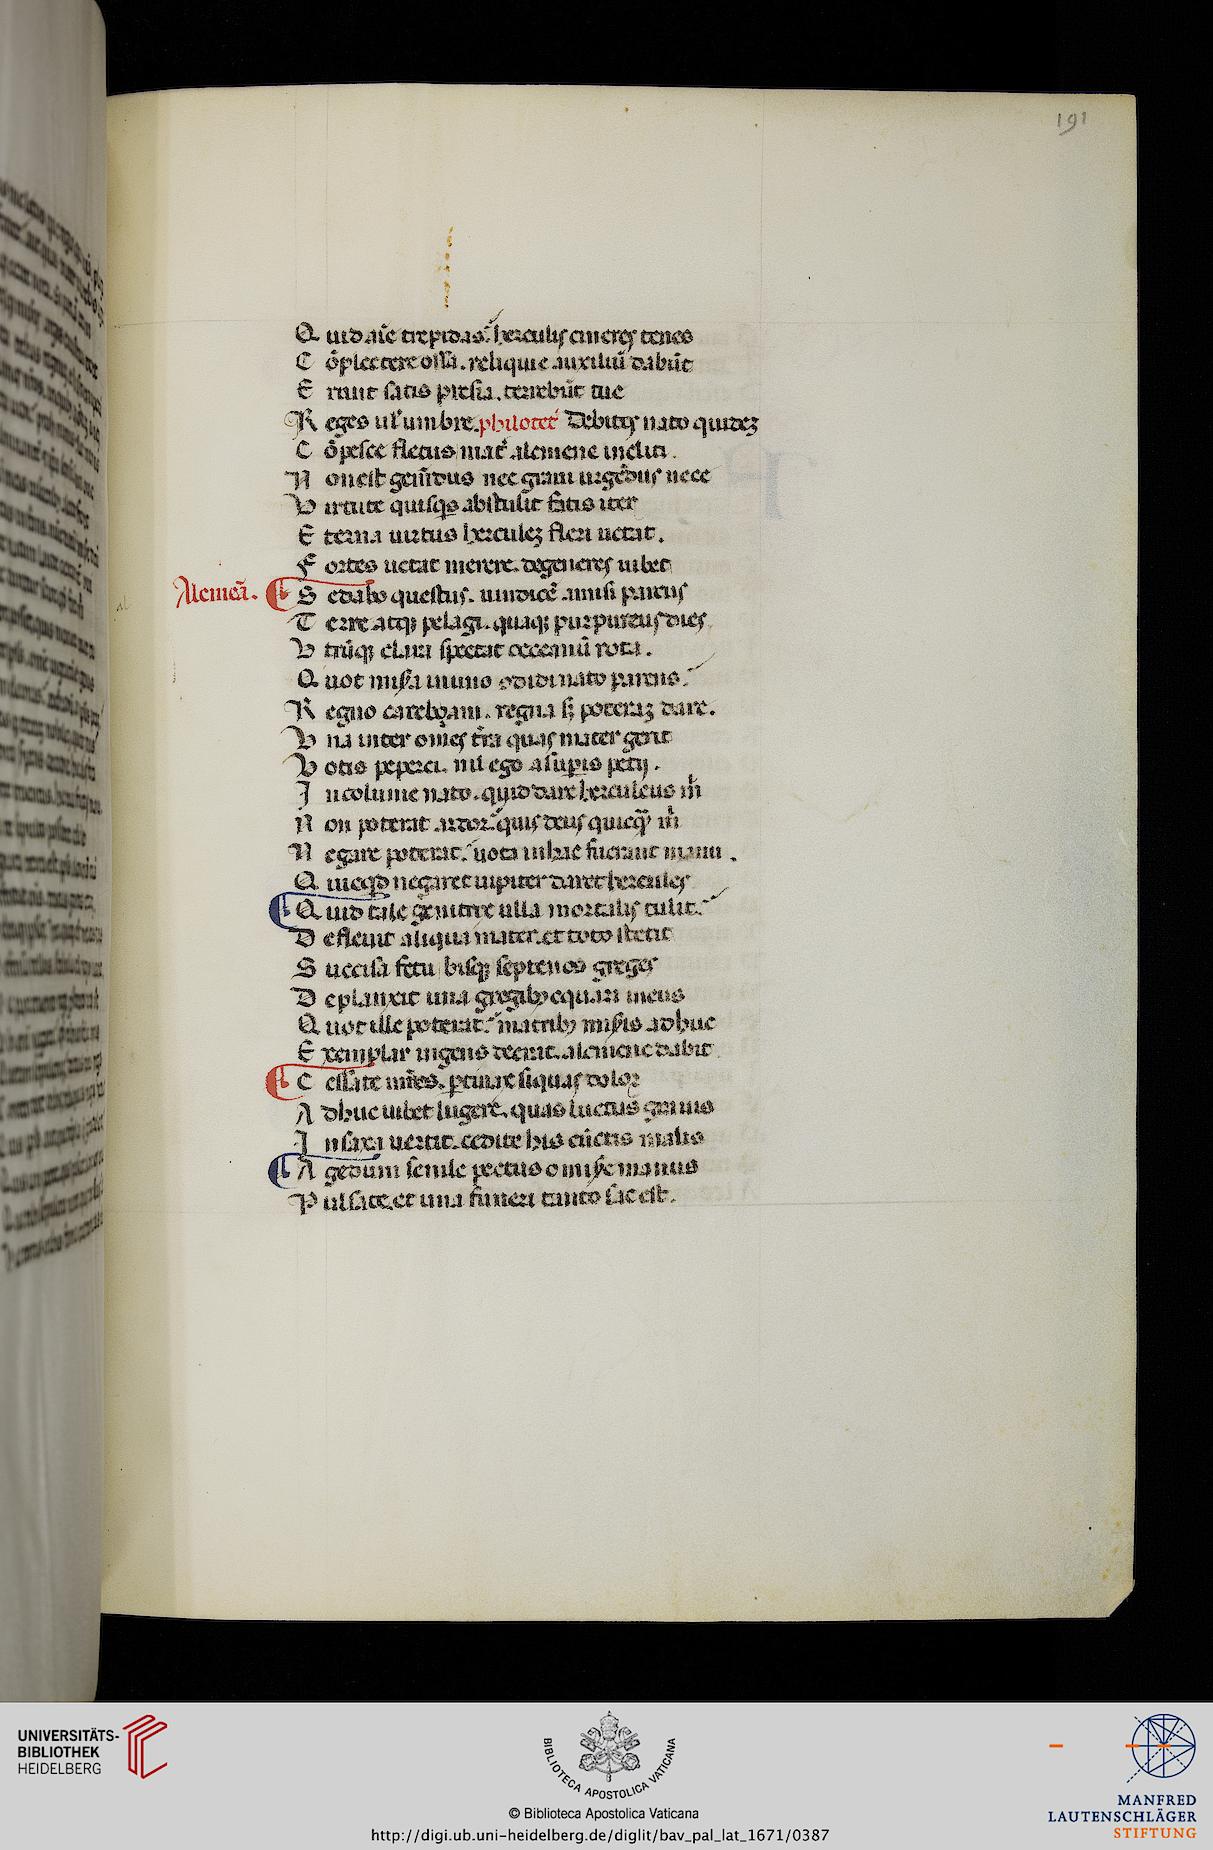 191
Quid aũe trepidas? herculis cineres tenes
Cõplectere ossa. reliquie auxiliũ dabũt
Erunt satis presia. terrebũt tue
Reges ul' umbre. philotet' Debitis nato quidez
Cõpesce fletus mat' alcmene incliti.
Non est gem̃dus nec graui urgẽdus nece
Virtute quisqs abstulit fatis iter
Eterna uirtus herculez fleri uetat.
Fortes uetat merere. degeneres iubet
Alcmeã. Sedabo questus. uindicẽ amisi parens
Terre atq; pelagi. quaq; purpureus dies
Vtrũq; clara spectat occeanũ rota.
Quot misa in uno condidi nato parens?
Regno carebam. regna s; poteraz dare.
Vna inter oms̃ tr̃a quas mater gerit
Votis peperci. nil ego a superis petij.
Incolume nato. quid dare herculeus m
Non poterat ardor? quis deus quicq̃ m
Negare poterat? uota in hac fuerant manu.
Quicqd negaret iupiter daret hercules
Quid tale genitrix ulla mortalis tulit?
Defleuit aliqua mater. et toto stetit
Succisa fetu bisq; septenos greges
Deplanxit una gregibȝ equari meus
Quot ille poterat? matribȝ misis adhuc
Exemplar ingens deerat. alcmene dabit
Cessate mr̃es. ptinax siquas dolor
Adhuc iubet lugere. quas luctus grauis
In saxa uertit. cedite his cũctis malis
Agedum senile pectus o mise manus
Pulsate. et una funeri tanto sat est.
UNIVERSITÄTS-
BIBLIOTHEK
HEIDELBERG
BIBLIOTECA APOSTOLICA VATICANA
© Biblioteca Apostolica Vaticana
http://digi.ub.uni-heidelberg.de/diglit/bav_pal_lat_1671/0387
MANFRED
LAUTENSCHLÄGER
STIFTUNG